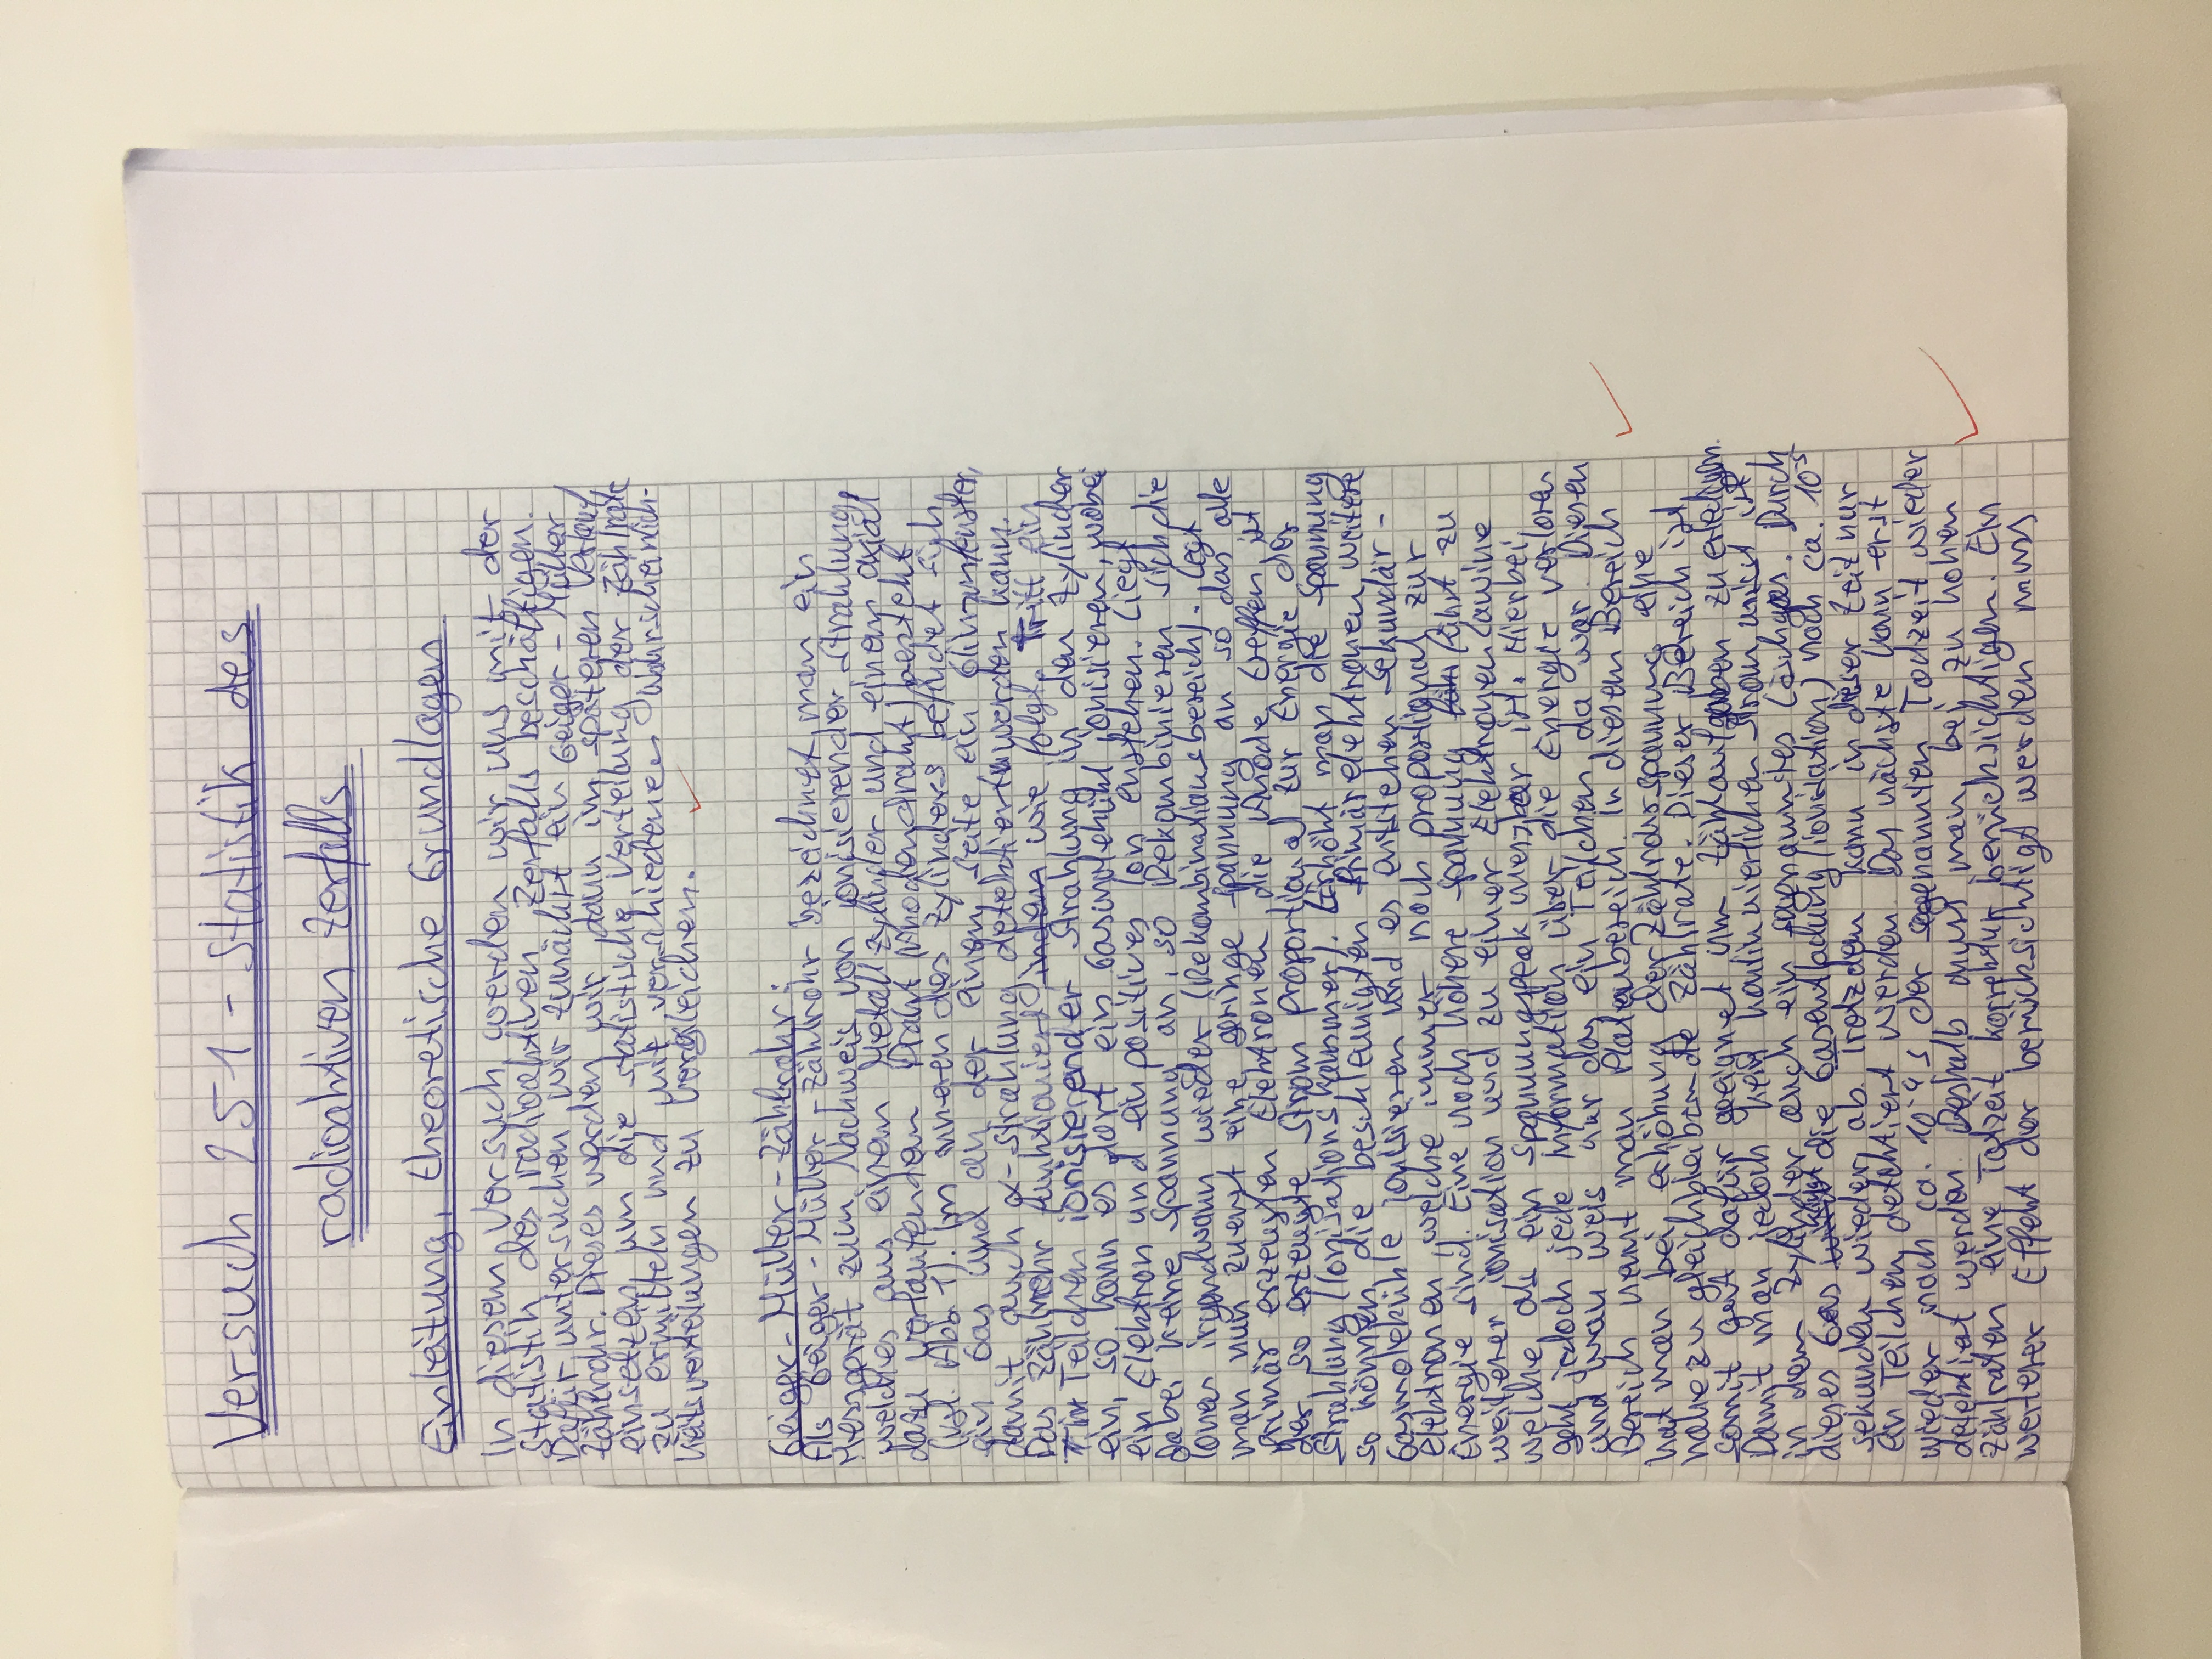 Versuch 251 - Statistik des
radioaktiven Zerfalls
Einleitung, theoretische Grundlagen
In diesem Versuch werden wir uns mit der
Statistik des radioaktiven Zerfalls beschäftigen.
Dafür untersuchen wir zunächst ein Geiger-Müller
Zählrohr. Dieses werden wir dann im späteren Verlauf
einsetzen um die statistische Verteilung der Zählrate
zu ermitteln und mit verschiedenen Wahrscheinlich-
keitsverteilungen zu vergleichen.
Geiger-Müller-Zählrohr:
Als Geiger-Müller-Zählrohr bezeichnet man ein
Messgerät zum Nachweis von ionisierender Strahlung,
welches aus einem Metallzylinder und einem axial
dazu verlaufenden Draht (Anodendraht) besteht
(vgl. Abb. 1). Im inneren des Zylinders befindet sich
ein Gas und an der einen Seite ein Glimmfenster,
damit auch α-Strahlung detektiert werden kann.
Das Zählrohr funktioniert indem wie folgt. Tritt ein
Teilchen ionisierender Strahlung in den Zylinder
ein, so kann es dort ein Gasmolekühl ionisieren, wobei
ein Elektron und ein positives Ion enstehen. Liegt
dabei keine Spannung an, so Rekombinieren sich die
Ionen irgendwann wieder (Rekombinationsbereich). Legt
man nun zuerst eine geringe Spannung an so das alle
primär erzeugten Elektronen die Anode treffen, ist
der so erzeugte Strom proportional zur Energie der
Strahlung (Ionisationskammer). Erhöht man die Spannung
so können die beschleunigten Primärelektronen weitere
Gasmolekühle ionisieren und es entstehen Sekundär-
elektronen, welche immer noch proportional zur
Energie sind. Eine noch höhere Spannung führt zu
weiterer ionisation und zu einer Elektronenlawine
welche als ein Spannungspeak messbar ist. Hierbei
geht jedoch jede Information über die Energie verloren
und man weis nur das ein Teilchen da war. Diesen
Bereich nennt man Plateubereich. In diesem Bereich
hat man bei erhöhung der Zählrohrspannung eine
nahezu gleichbleibende Zählrate. Dieser Bereich ist
somit gut dafür geeignet um Zählaufgaben zu erledigen.
Damit man jedoch kein kontinuierlichen Strom misst ist
in dem Zylinder auch ein sogenanntes Löschgas. Durch
dieses Gas klingt die Gasentladung (ionisation) nach ca. 10⁻⁵
sekunden wieder ab. Trotzdem kann in dieser Zeit nur
ein Teilchen detektiert werden. Das nächste kann erst
wieder nach ca. 10⁻⁴ s, der sogenannten Todzeit wieder
detektiert werden. Deshalb muss man bei zu hohen
Zählraten eine Totzeit korrektur berücksichtigen. Ein
weiterer Effekt der berücksichtigt werden muss